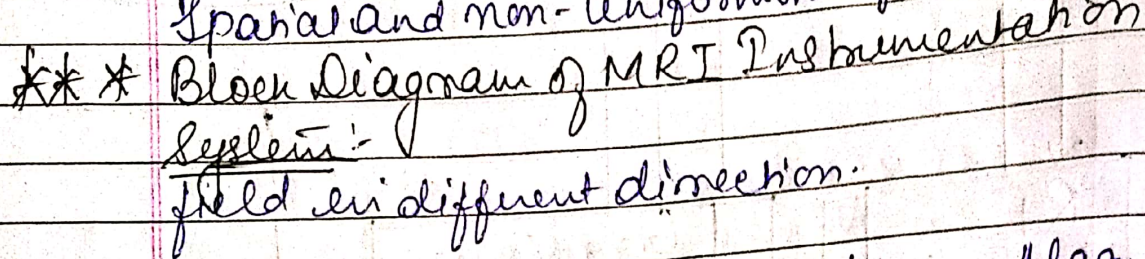 Spatial and non-
*** Block Diagram of MRI Instrumentation
System:-
field in different direction.